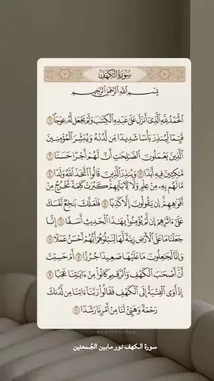 سُورَةُ الكَهْفِ
بِسْمِ اللَّهِ الرَّحْمَٰنِ الرَّحِيمِ
الْحَمْدُ لِلَّهِ الَّذِي أَنزَلَ عَلَىٰ عَبْدِهِ الْكِتَابَ وَلَمْ يَجْعَل لَّهُ عِوَجًا ۜ ١
قَيِّمًا لِّيُنذِرَ بَأْسًا شَدِيدًا مِّن لَّدُنْهُ وَيُبَشِّرَ الْمُؤْمِنِينَ
الَّذِينَ يَعْمَلُونَ الصَّالِحَاتِ أَنَّ لَهُمْ أَجْرًا حَسَنًا ٢
مَّاكِثِينَ فِيهِ أَبَدًا ٣ وَيُنذِرَ الَّذِينَ قَالُوا اتَّخَذَ اللَّهُ وَلَدًا ٤
مَّا لَهُم بِهِ مِنْ عِلْمٍ وَلَا لِآبَائِهِمْ كَبُرَتْ كَلِمَةً تَخْرُجُ مِنْ
أَفْوَاهِهِمْ إِن يَقُولُونَ إِلَّا كَذِبًا ٥ فَلَعَلَّكَ بَاخِعٌ نَّفْسَكَ
عَلَىٰ آثَارِهِمْ إِن لَّمْ يُؤْمِنُوا بِهَٰذَا الْحَدِيثِ أَسَفًا ٦ إِنَّا
جَعَلْنَا مَا عَلَى الْأَرْضِ زِينَةً لَّهَا لِنَبْلُوَهُمْ أَيُّهُمْ أَحْسَنُ عَمَلًا ٧
وَإِنَّا لَجَاعِلُونَ مَا عَلَيْهَا صَعِيدًا جُرُزًا ٨ أَمْ حَسِبْتَ
أَنَّ أَصْحَابَ الْكَهْفِ وَالرَّقِيمِ كَانُوا مِنْ آيَاتِنَا عَجَبًا ٩
إِذْ أَوَى الْفِتْيَةُ إِلَى الْكَهْفِ فَقَالُوا رَبَّنَا آتِنَا مِن لَّدُنكَ
رَحْمَةً وَهَيِّئْ لَنَا مِنْ أَمْرِنَا رَشَدًا ١٠
سورة الكهف نور مابين الجُمعتين